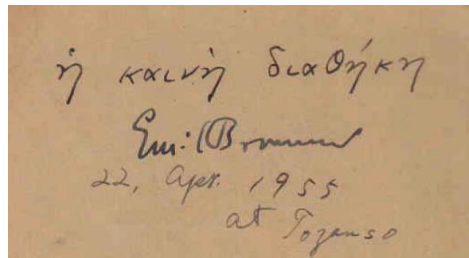 ἡ καινὴ διαθήκη
Emil Brunner
22, Apr. 1955
at Tozanso